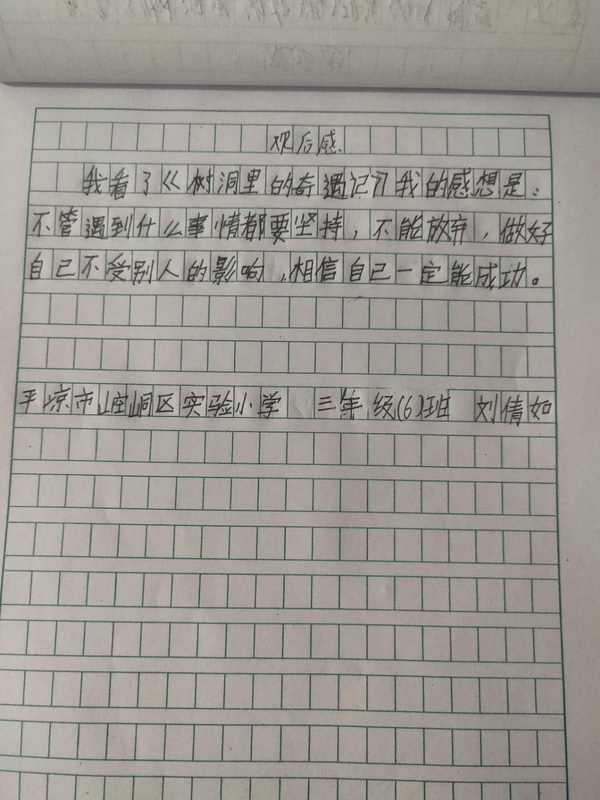 观后感
我看了《树洞里的奇遇记》我的感想是：
不管遇到什么事情都要坚持，不能放弃，做好
自己不受别人的影响，相信自己一定能成功。
平凉市崆峒区实验小学 三年级(6)班 刘倩如